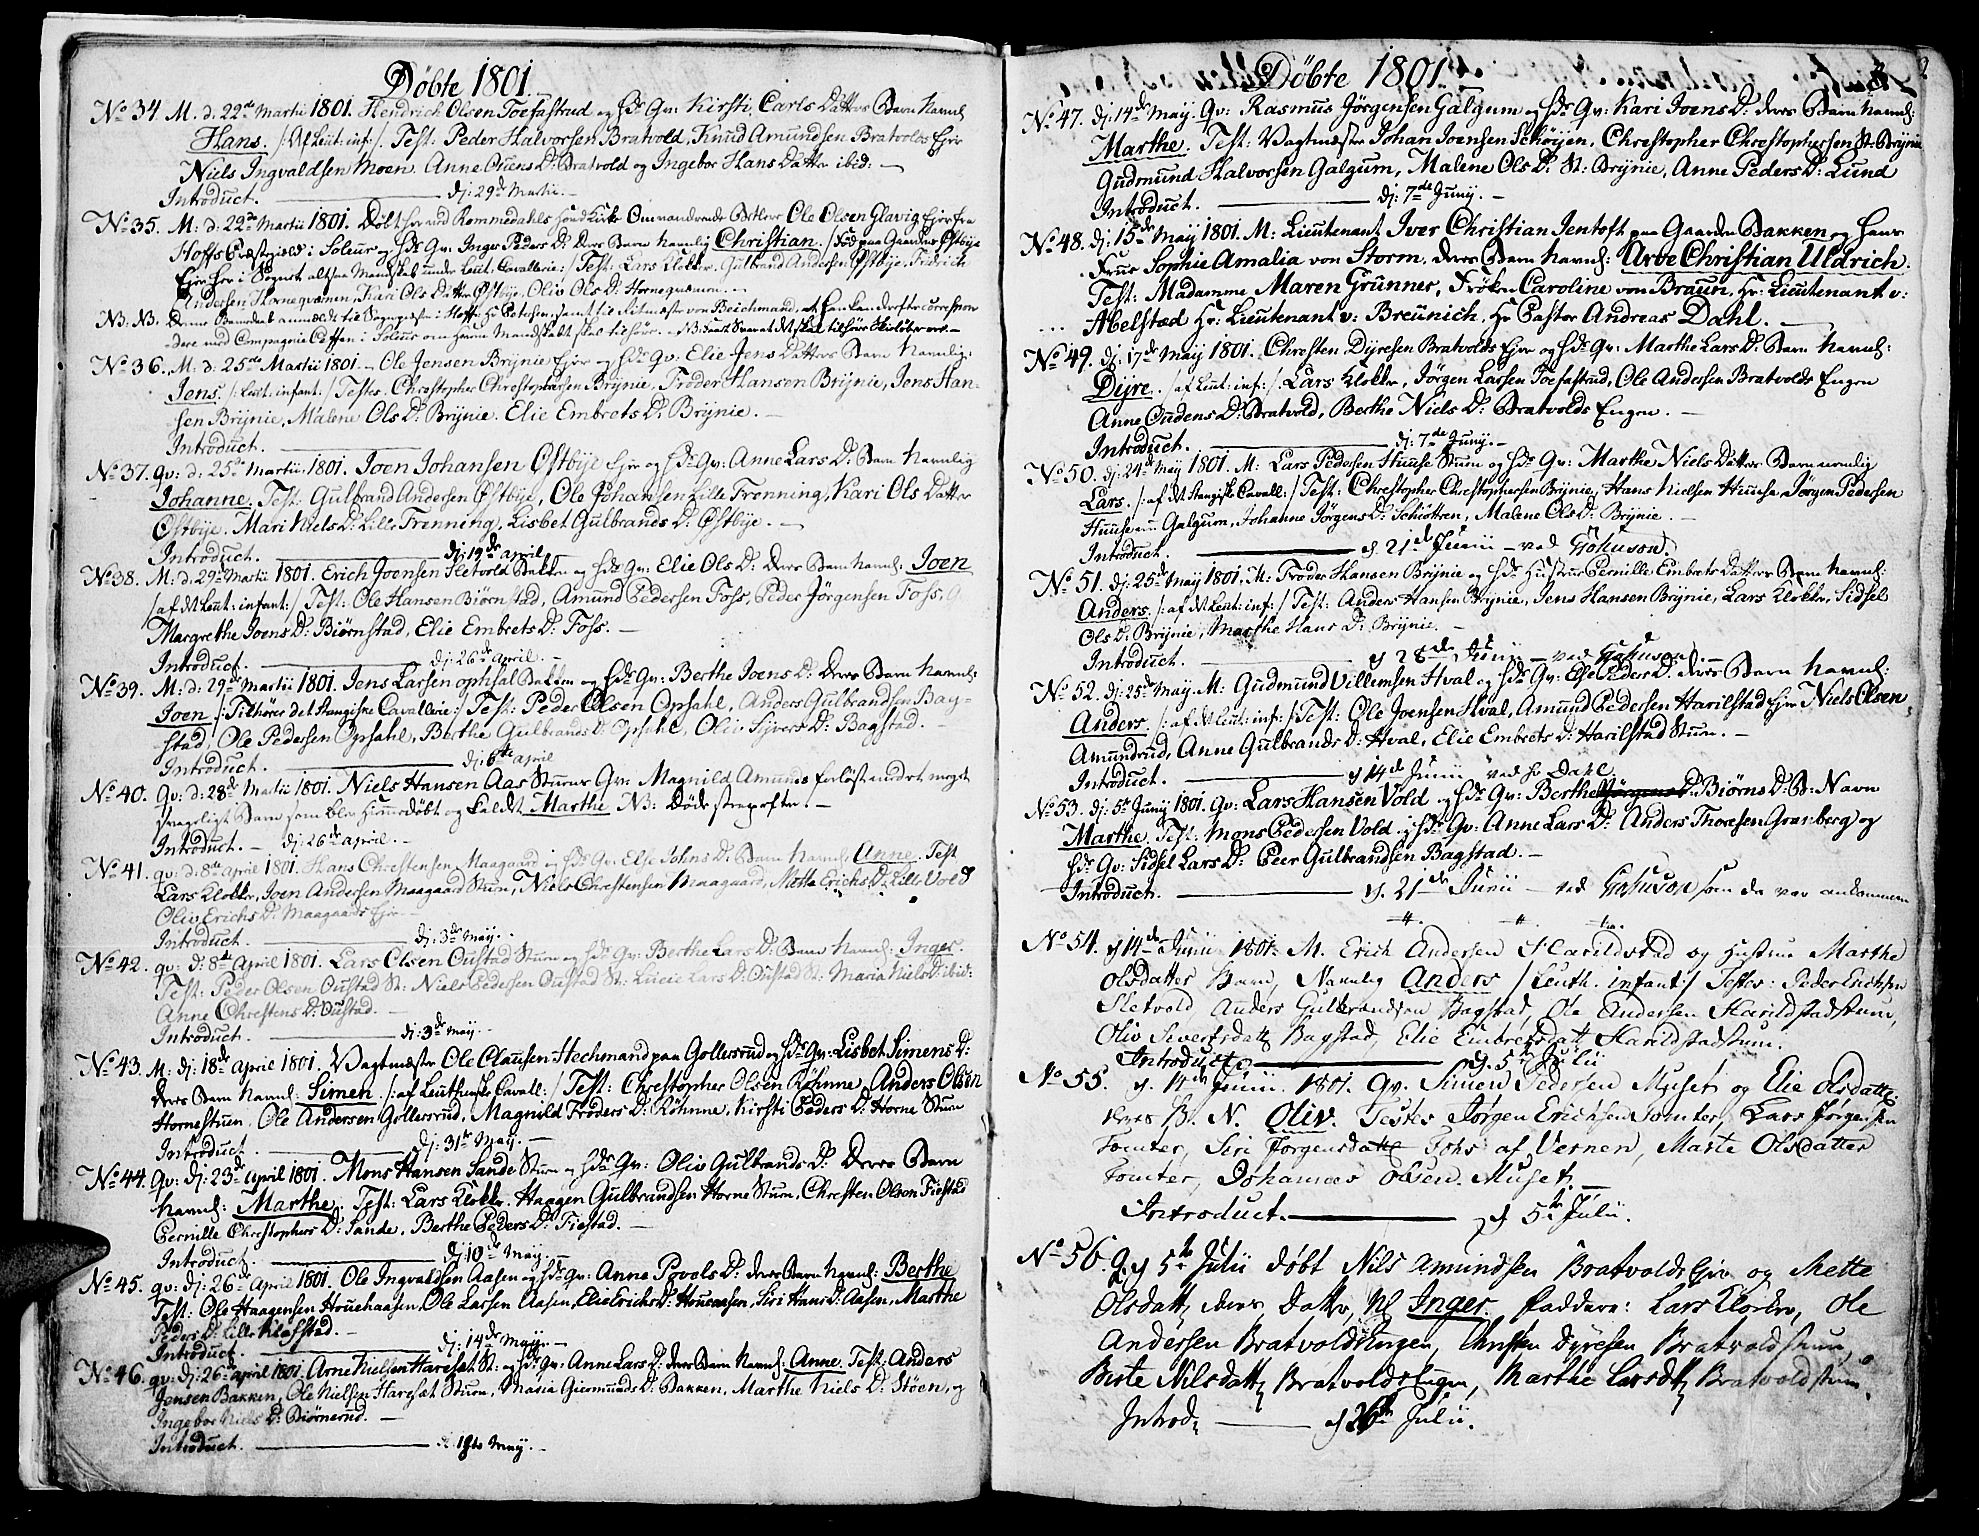 Döbte 1801.
No 34. M. d. 22de Martii 1801. Hendrich Olsen Toefastrud og Hds Qv: Kirsti Carls Datters Barn Navnl
Hans. /: Af Leut: inf: /. Test: Peder Halvorsen Bratvold, Knud Amundsen Bratvolds Eje
Niels Ingvaldsen Moen. Anne Ouens D: Bratvold og Ingebor Hans Datter ibid: —
Introduct. — Dj: 29de Martii. —
No 35. M: d: 22de Martii 1801. Döbt Rommedahls Kirke Omvandrende Ole Olsen Glavig Eje fra
Hoffs Præstegield i Soleur og Hds Qv: Inger Peders D: Deres Barn Navnlig Christian. /: Föd paa Gaarden Östbye
Eje her i Sognet altsaa Mandskab under Leut. Cavallerie: / Test: Lars Klokker, Gulbrand Andersen Östbye, Fridrich
Andersen Hornequærnen, Kari Ole Datter Östbye, Oliv Ols D: Hornequærnen. —
NB. NB. Denne Barnedaab anmældt til Sognepræst i Hoff Hr Petersen samt til Ritmester von Beichmand, at han kan derfter correspon-
dere med Compagnie Cheffen i Soleur om hvem Mandskabet skal tilhöre. —
No 36. M: d: 25de Martii 1801. Ole Jensen Brynie Eje og Hds Qv. Elie Jens Datters Barn Navnlig:
Jens. /: Leut: infant: / Testes. Christopher Christophersen Brynie, Froder Hansen Brynie, Jens Han-
sen Brynie, Malene Ols D: Brynie. Elie Embrets D: Brynie. —
Introduct. —
No 37. Qv: d: 25de Martii 1801. Joen Johansen Östbye Eje og Hds Qv: Anne Lars D: Barn Navnlig
Johanne. Test: Gulbrand Andersen Östbye, Ole Johansen Lille Frenning, Kari Ols Datter
Östbye. Mari Niels D: Lille Frenning, Lisbet Gulbrands D. Östbye. —
Introduct. — Dj: 12de April
No 38. M: d: 29de Martii 1801. Erich Joensen Sletvold Bakken og Hds Qv: Elie Ols D: Deres Barn Navnl: Joen
/: af dt Leut: infant: / Test: Ole Hansen Biørnstad, Amund Pedersen Foss, Peder Jörgensen Foss,
Margrethe Joens D: Biørnstad, Elie Embrets D: Foss. —
Introduct. — Dj: 26de April. —
No 39. M: d: 29de Martii 1801. Jens Larsen Opsal Bakken og Hds Qv: Berthe Joens D: Deres Barn Navnl:
Joen. /: Tilhører det Stangiske Cavallerie: / Test: Peder Olsen Opsahl, Anders Gulbrandsen Bag-
stad, Ole Pedersen Opsahl, Berthe Gulbrands D: Opsahl, Oliv Sivers D: Bagstad. —
Introduct. — Dj: 6te April
No 40. Qv: d: 28de Martii 1801. Niels Hansen Aas Stuen Qv: Magnild Amunds forlöst med et meget
svageligt Barn som blev hiemmedöbt og kaldet Marthe NB: Döde strax efter. —
Introduct. — Dj: 26de April. —
No 41. Qv: d. 8de April 1801. Hans Chrestensen Maagaard og Hds Qv. Else Johns D: Barn Navnl: Anne. Test
Lars Klokker, Joen Andersen Maagaard Stuen, Niels Chrestensen Maagaard, Mette Erichs D: Lille Vold
Oliv Erichs D: Maagaards Eje. —
Introduct. — Dj: 3de May. —
No 42. qv: D: 8de April 1801. Lars Olsen Oustad Stuen og Hds Qv: Berthe Lars D: Barn Navnl: Inger.
Test: Peder Olsen Oustad St: Niels Pedersen Oustad St: Lucie Lars D: Oustad St: Maria Niels D: ibid:
Anne Chrestens D: Oustad. —
Introduct. — Dj: 3de May. —
No 43. M: Dj: 18de April 1801. Vagtmester Ole Clausen Hechmand paa Gollersrud og Hds Qv: Lisbet Simens D:
Deres Barn Navnl: Simen. /: af Leuthenske Cavall: / Test: Christopher Olsen Röhnne, Anders Olsen
Hornestuen, Ole Andersen Gollersrud, Magnild Froders D: Röhnne, Kirsti Peders D: Horne Stuen
Introduct. — Dj: 31te May. —
No 44. Qv: Dj: 23de April 1801. Mons Hansen Sande Stuen og Hds Qv: Oliv Gulbrands D: Deres Barn
Navnl: Marthe. Test: Lars Klokker, Haagen Gulbrandsen Horne Stuen, Chresten Olsen Fiestad
Pernille Christophers D: Sande, Berthe Peders D: Fiestad. —
Introduct. — Dj: 10de May. —
No 45. qv: Dj: 26de April 1801. Ole Ingvaldsen Aasen og Hds qv: Anne Povels D: deres Barn Navnl: Berthe
Test: Ole Haagensen Houehaasen, Ole Larsen Aasen, Elie Erichs D: Houeaasen, Siri Hans D: Aasen, Marthe
Peders D: Lille Kiefstad. —
Introduct. — Dj: 14de May. —
No 46. qv: Dj: 26de April 1801. Arne Nielsen Hareset St: og Hds qv: Anne Lars D: deres Barn Navnl: Anne. Test: Anders
Jensen Bakken, Ole Nielsen Hareset Stuen, Maria Giermunds D: Bakken, Marthe Niels D: Stöen, og
Ingebor Niels D: Biörnerud. —
Introduct. — May. —
Döbte 1801
No 47. Dj: 14de May. Qv: Rasmus Jörgensen Galgum og Hds Qv: Kari Joens D: deres Barn Navnl:
Marthe. Test: Vagtmester Johan Joensen Schöyen, Chrestopher Chrestophersen St: Brynie
Gudmund Halvorsen Galgum, Malene Ols D: St: Brynie, Anne Peders D: Lund
Introduct. — Dj: 7de Juny. —
No 48. Dj: 15de May 1801. M: Lieutenant Iver Christian Jentoft paa Gaarden Bakken og Hans
Frue Sophie Amalia von Storm, deres Barn Navnl: Arve Christian Uldrich.
Test: Madamme Maren Grunner, Fröken Caroline von Braun, Hr: Lieutenant v:
Abelstæd Hr: Lieutenant v: Breünich, Hr Pastor Andreas Dahl. —
No 49. Dj: 17de May 1801. Chresten Dyresen Bratvolds Eje og Hds Qv: Marthe Lars D: Barn Navnl:
Dyre. /: af Leut: inf: / Lars Klokker, Jörgen Larsen Toefastrud, Ole Andersen Bratvolds Engen
Anne Oudens D: Bratvold, Berthe Niels D: Bratvolds Engen. —
Introduct. — Dj: 7de Juny. —
No 50. Dj: 24de May 1801. M: Lars Pedersen Huuse Stuen og Hds Qv: Marthe Niels Datters Barn navnlig
Lars. /: af det Stangiske Cavall: / Test: Christopher Christophersen Brynie, Hans Nielsen Huuse, Jörgen Pedersen
Huuse Galgum, Johanne Jörgens D: Schiöttren, Malene Ols D: Brynie. —
Introduct. — d. 21de Junii — ved Gohuson.
No 51. Dj: 25de May 1801. M: Froder Hansen Brynie og Hds Hustrue Pernille Embrets Datters Barn Navnl:
Anders. /: af dt Leut: inf: / Test: Anders Hansen Brynie, Jens Hansen Brynie, Lars Klokker, Sidsel
Ols D: Brynie, Marthe Hans D: Brynie. —
Introduct. — d. 28de Junii — ved Gohuson. —
No 52. Dj: 25de May. M: Gudmund Villumsen Hval og Hds Qv: Else Peders D: deres Barn Navnl:
Anders. /: af dt Leut: inf: / Test: Ole Joensen Hval, Amund Pedersen Harilstad Eje Niels Olsen
Amundrud, Anne Gulbrands D: Hval, Elie Embrets D: Harilstad Stuen. —
Introduct. — d 14de Junii ved Hr Dahl
No 53. Dj: 5te Juny 1801. Qv: Lars Hansen Vold og Hds Qv: Berthe Biörns D: B: Navn
Marthe. Test: Mons Pedersen Vold og Hds Qv: Anne Lars D: Anders Thoresen Granberg og
Hds Qv: Sidsel Lars D: Peer Gulbrandsen Bagstad. —
Introduct. — d. 21de Junii — ved Gohuson som da var ankommen
No 54. d 14de Junii 1801. M. Erich Andersen Harildstad og Hustrue Marthe
Olsdatters Barn, Navnlig Anders /: Leuth. infant: / Testes: Peder Erichsen
Sletvold, Anders Gulbrandsen Bagstad, Ole Andersen Harildstadstuen,
Oliv Siversdatt. Bagstad, Elie Embretsdatt Harildstadstuen.
Introduct. — d. 5te Julii
No 55. d. 14de Junii. 1801. Qv. Simen Pedersen Myset og Elie Olsdatter
deres B. N. Oliv. Testes Jörgen Erichsen Tomter, Lars Jörgensen
Tomter, Siri Jörgensdatter af Vernen, Marte Olsdatter
Tomter, Johannes Olsen Muset. —
Introduct. — d 5te Julii.
No 56. Q. d 5te Julii döbt Nils Amundsen Bratvolds Eje og Mette
Olsdatt deres Datter, Nl Inger. Faddere: Lars Klocker, Ole
Andersen Bratvoldsengen, Christen Dyresen Bratvoldstuen,
Birte Nilsdatt Bratvoldsengen, Marthe Larsdt Bratvoldstuen.
Introd. — d 26de Julii.